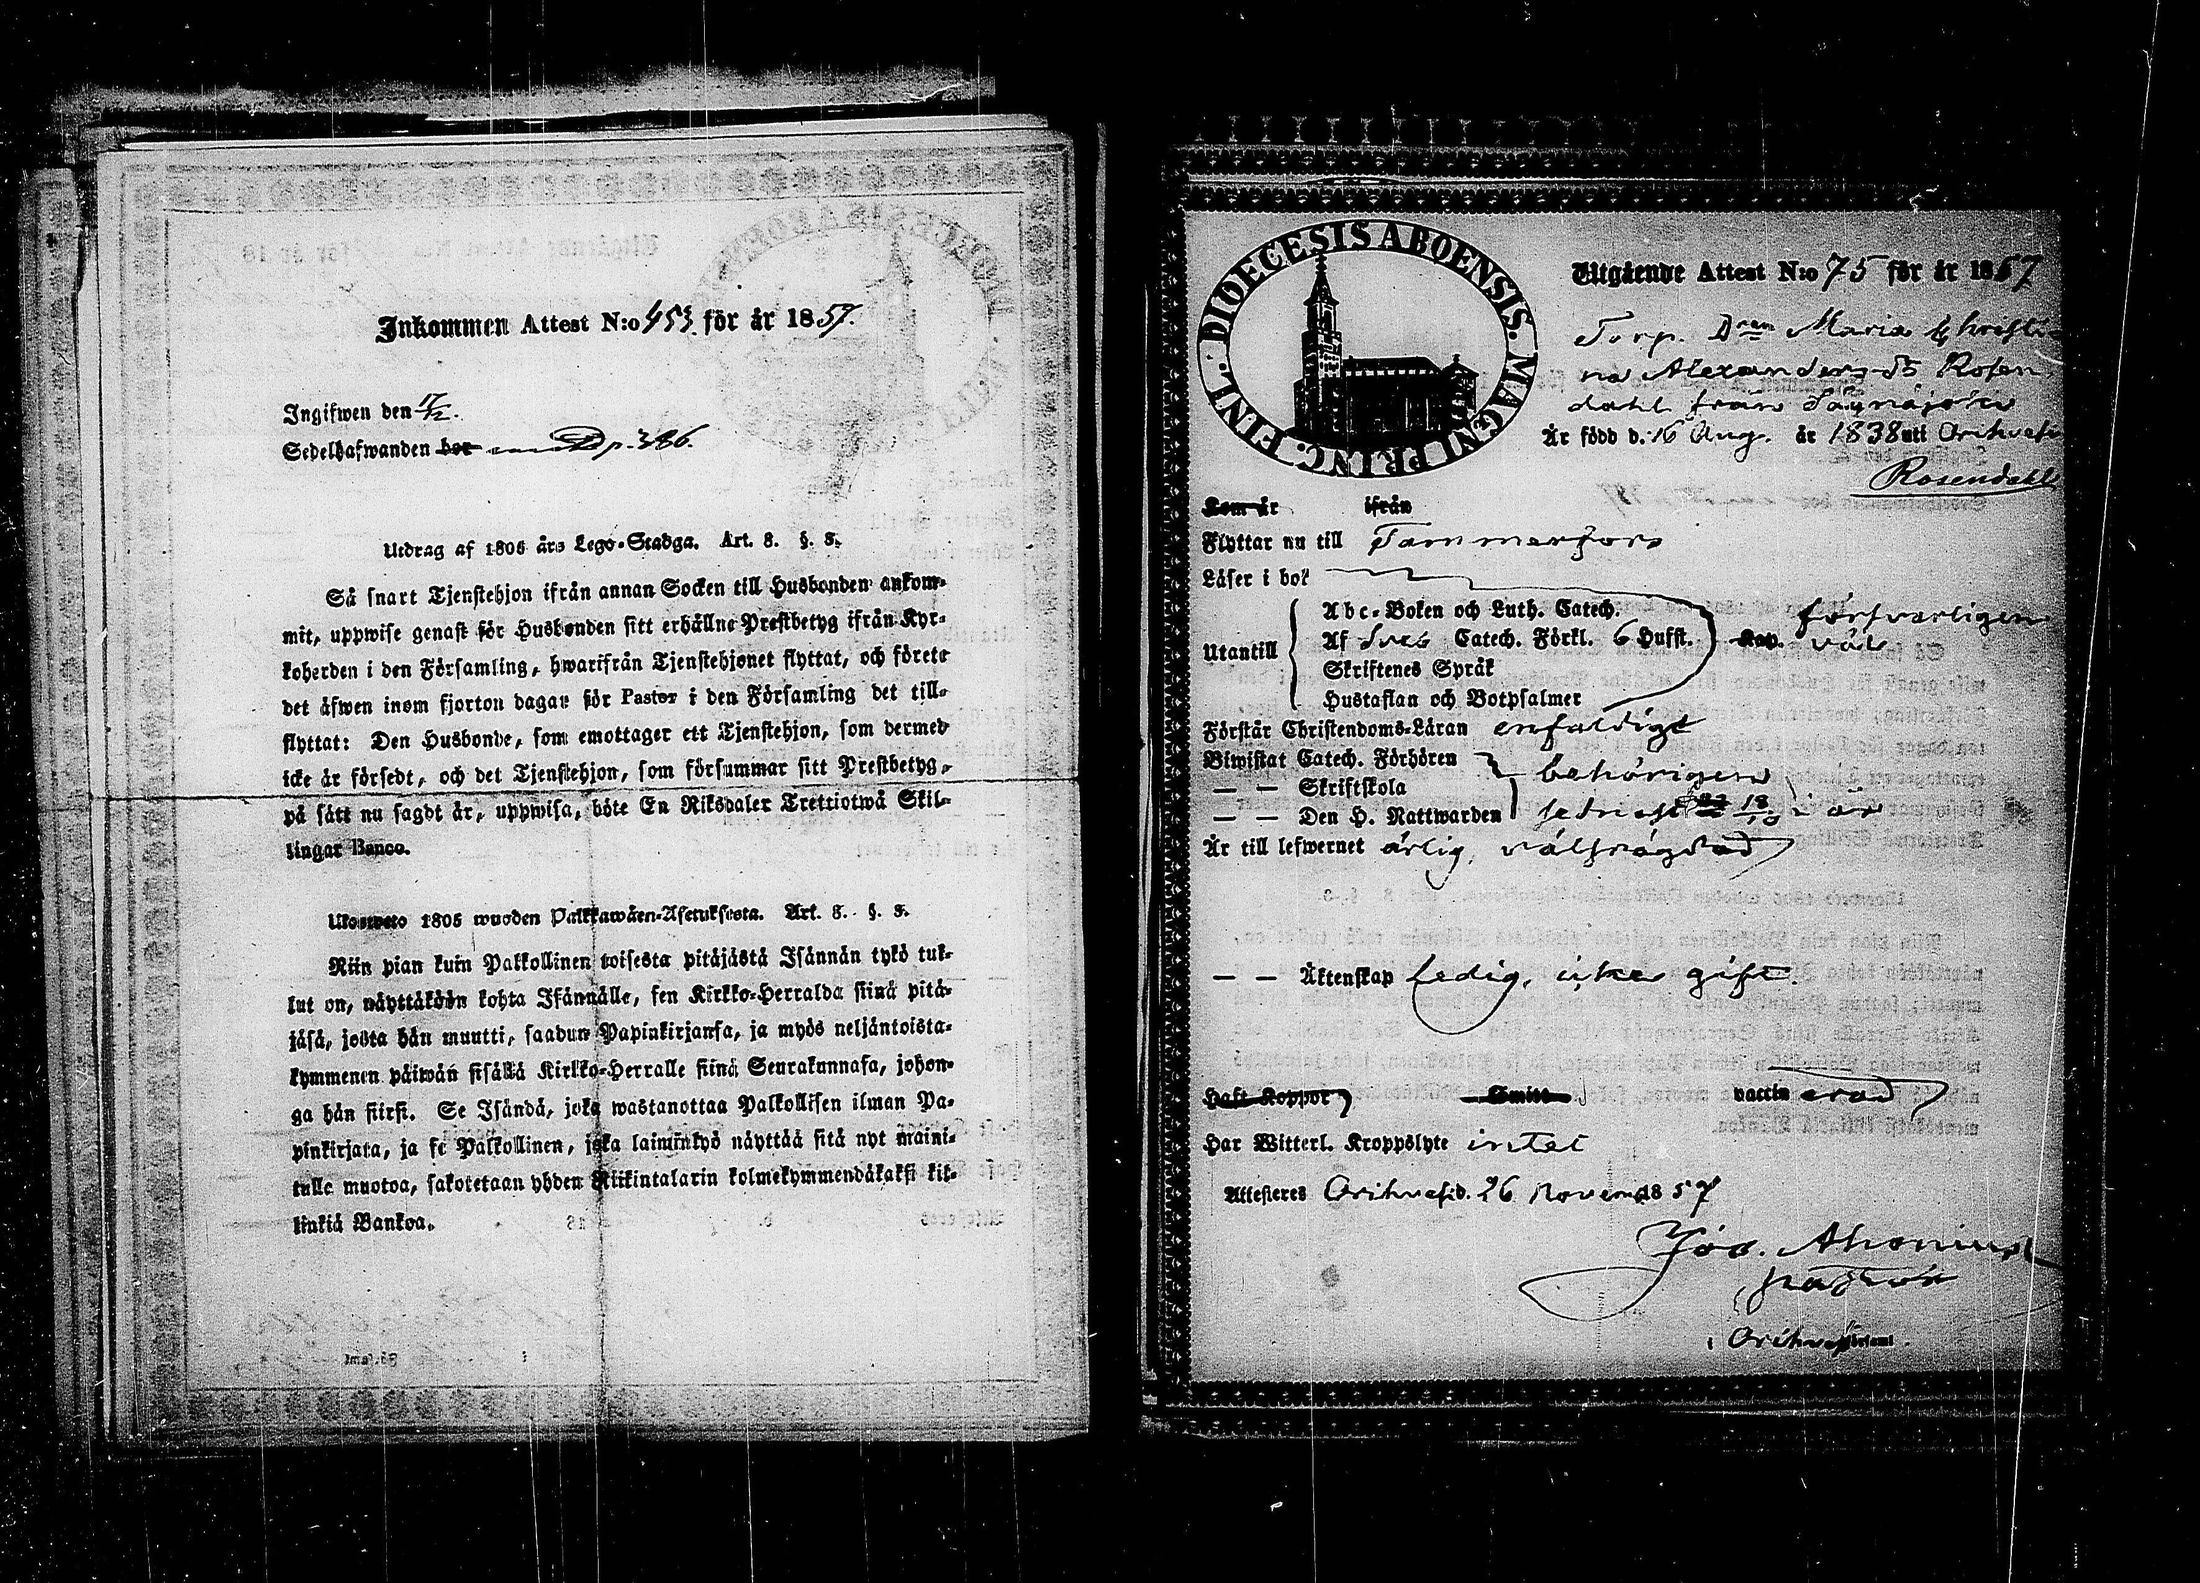 Inkommen Attest N:o 453. för år 1857.
Ingifwen den 17/12.
Sedelhafwanden bor p. 386.
Utdrag af 1805 års Lego-Stadga. Art. 8. §. 8.
Så snart Tjenstehjon ifrån annan Socken till Husbonden ankom-
mit, uppwise genast för Husbonden sitt erhållne Prestbetyg ifrån Kyr-
koherden i den Församling, hwarifrån Tjenstehjonet flyttat, och förete
det äfwen inom fjorton dagar för Pastor i den Församling det till-
flyttat: Den Husbonde, som emottager ett Tjenstehjon, som dermed
icke är försedt, och det Tjenstehjon, som försummar sitt Prestbetyg,
på sätt nu sagdt är, uppwisa, böte En Riksdaler Trettiotwå Skil-
lingar Banco.
Ulosweto 1805 wuoden Palkkawäen-Asetuksesta. Art. 8. §. 8.
Niin pian kuin Palkollinen toisesta pitäjästä Isännän tykö tul-
lut on, näyttäköön kohta Isännälle, sen Kirkko-Herralda siinä pitä-
jäsä, josta hän muutti, saadun Papinkirjansa, ja myös neljäntoista-
kymmenen päiwän sisällä Kirkko-Herralle siinä Seurakunnasa, johon-
ga hän siirsi. Se Isändä, joka wastanottaa Palkollisen ilman Pa-
pinkirjata, ja se Palkollinen, joka laiminlyö näyttää sitä nyt maini-
tulla muotoa, sakotetaan yhden Riikintalarin kolmekymmendäkaksi kil-
linkiä Bankoa.
DIOECESIS ABOENSIS. MAGNI PRINC. FINL.
Utgående Attest N:o 75 för år 1857
Torp. Dren Maria Christi-
na Alexandersdr Rosen
dahl från
Är född d. 16 Aug. år 1838 uti Orihvesi
Rosendahl
Kom år ifrån
Flyttar nu till Tammerfors
Läser i bok
Abc-Boken och Luth. Catech. försvarligen
Utantill Af Sveb Catech. Förkl. 6 Hufst. Kap. väl
Skriftenes Språk
Hustaflan och Botpsalmer
Förstår Christendoms-Läran enfaldigt
Biwistat Catech. Förhören behörigen
— — Skriftskola
— — Den H. Nattwarden sednast 18/10 i år
Är till lefwernet ärlig, välfrägdad
— — Äktenskap ledig, icke gift.
Haft Koppor Smitt vaccin erad
Har Witterl. Kroppslyte intet
Attesteras Orihvesi d. 26 Novemb 1857
Joo. Ahonius
pastor
i Orihvesi